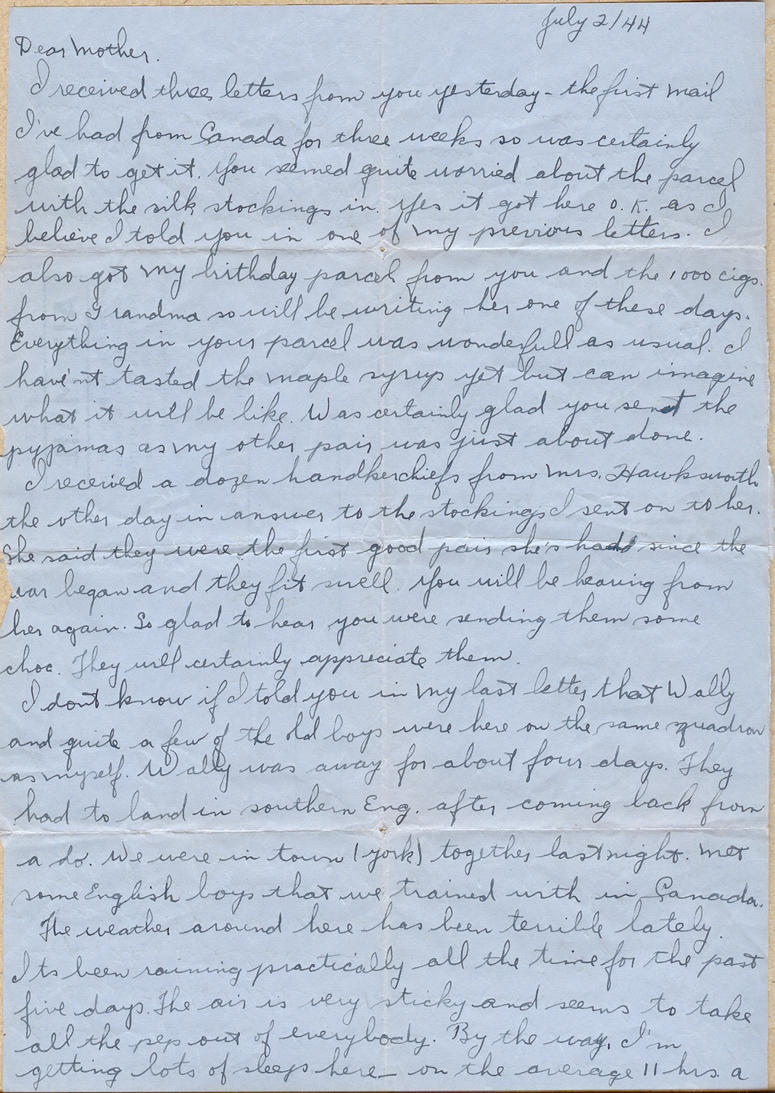 July 2/44
Dear Mother.
I received three letters from you yesterday - the first mail
I've had from Canada for three weeks so was certainly
glad to get it. You seemed quite worried about the parcel
with the silk stockings in. Yes it got here O.K. as I
believe I told you in one of my previous letters. I
also got my birthday parcel from you and the 1000 cigs.
from Grandma so will be writing her one of these days.
Everything in your parcel was wonderfull as usual. I
hav'nt tasted the maple syrup yet but can imagine
what it will be like. Was certainly glad you sent the
pyjamas as my other pair was just about done.
I received a dozen handkerchiefs from Mrs. Hawksworth
the other day in answer to the stockings I sent on to her.
She said they were the first good pair she's had since the
war began and they fit swell. You will be hearing from
her again. So glad to hear you were sending them some
choc. They will certainly appreciate them.
I dont know if I told you in my last letter that Wally
and quite a few of the old boys were here on the same squadron
as myself. Wally was away for about four days. They
had to land in southern Eng. after coming back from
a do. We were in town (York) together last night. Met
some English boys that we trained with in Canada.
The weather around here has been terrible lately.
Its been raining practically all the time for the past
five days. The air is very sticky and seems to take
all the pep out of everybody. By the way, I'm
getting lots of sleep here - on the average 11 hrs. a